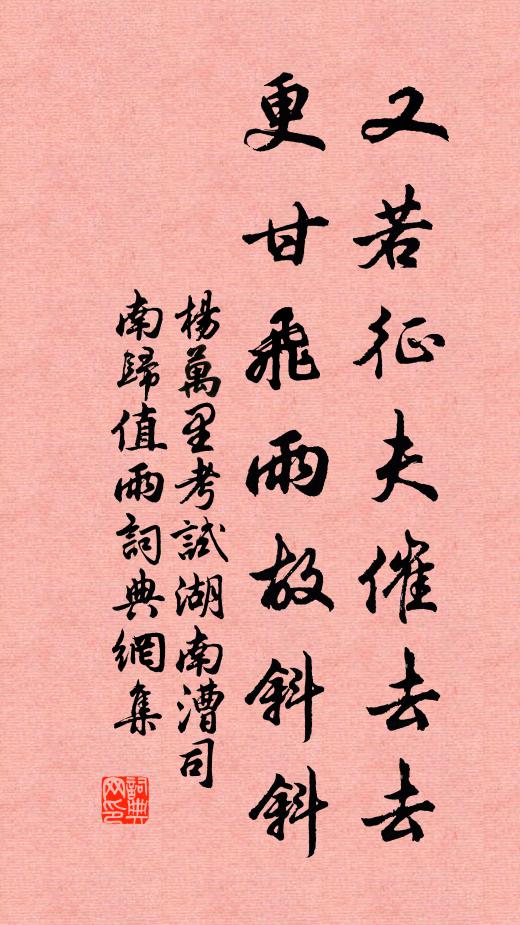 又若征夫催去去
更甘飛雨故斜斜
楊萬里考試湖南漕司
南歸值雨詞典網集
詞典网印